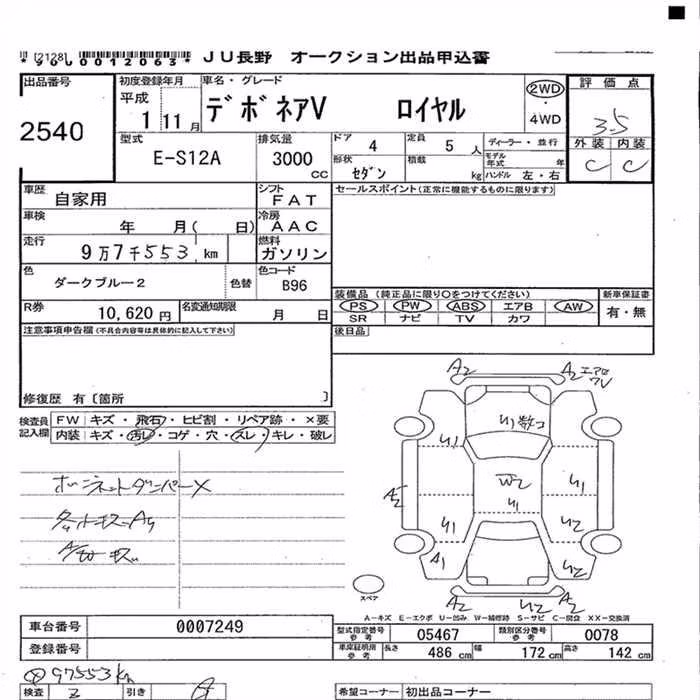 [2128]
*3000012063* JU長野 オークション出品申込書
出品番号 2540
初度登録年月 平成 1 11月
車名・グレード デボネアV ロイヤル
2WD ・ 4WD
評価点 3.5
外装 内装
C C
型式 E-S12A
排気量 3000 CC
ドア 4
定員 5 人
形状 セダン
積載 kg
ディーラー・並行
モデル年式 年
ハンドル 左・右
車歴 自家用
シフト FAT
セールスポイント(正常に機能するものに限ります)
車検 年 月( 日)
冷房 AAC
走行 9万7千553km
燃料 ガソリン
色 ダークブルー2 色替
色コード B96
装備品 (純正品に限り○をつけてください)
PS PW ABS エアB AW
SR ナビ TV カワ
新車保証書 有・無
R券 10,620円
名変通知期限 月 日
後日品
注意事項申告欄(不具合内容等は具体的に記入して下さい)
修復歴 有〔箇所 〕
検査員記入欄
FW キズ・飛石・ヒビ割・リペア跡・×要
内装 キズ・汚レ・コゲ・穴・スレ・キレ・破レ
ボンネットダンパーX
A2 A2 エアロ
U1 数コ
U1
W2
U1
U1
A2
U1
U2
A1
U2
A2 U2 A2
スペア
A-キズ E-エクボ U-凹み W-補修跡 S-サビ C-腐食 XX-交換済
車台番号 0007249
登録番号
型式指定番号 参考 05467
類別区分番号 参考 0078
車庫証明用 参考 長さ 486cm 幅 172cm 高さ 142cm
97553km
検査 2 引き
希望コーナー 初出品コーナー